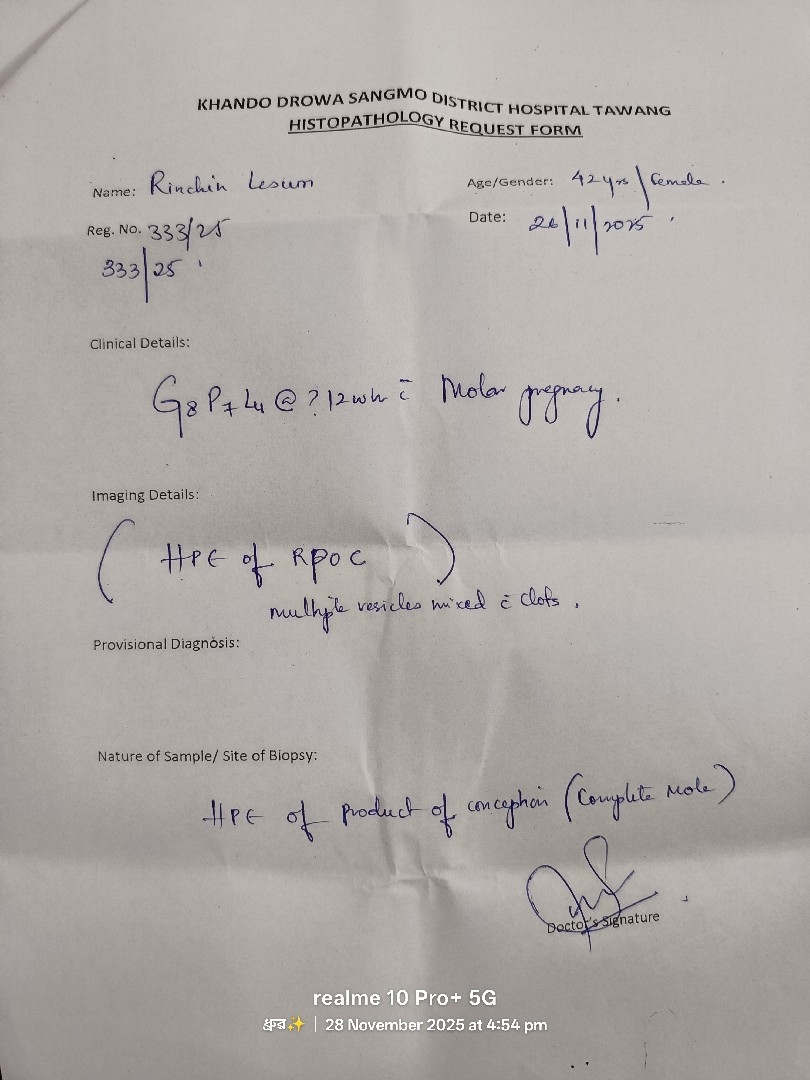 KHANDO DROWA SANGMO DISTRICT HOSPITAL TAWANG
HISTOPATHOLOGY REQUEST FORM
Name: Rinchin Lesum
Age/Gender: 42 yrs / female.
Reg. No. 333/25
Date: 26/11/2025
333/25
Clinical Details:
G8 P7 L4 @ ? 12 wk c̄ Molar pregnancy.
Imaging Details:
( HPE of RPOC )
multiple vesicles mixed c̄ clots.
Provisional Diagnosis:
Nature of Sample/ Site of Biopsy:
HPE of Product of conception (Complete Mole)
Doctor's Signature
realme 10 Pro+ 5G
ध्रुव✨ | 28 November 2025 at 4:54 pm